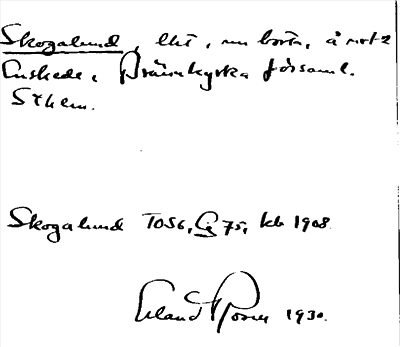 Skogalund, lht, nu borta, å nr 1-2
Enskede, Brännkyrka församl.
Sthlm.
Skogalund TOS6, Cg 75, kb 1908.
Erland Rosén 1930.